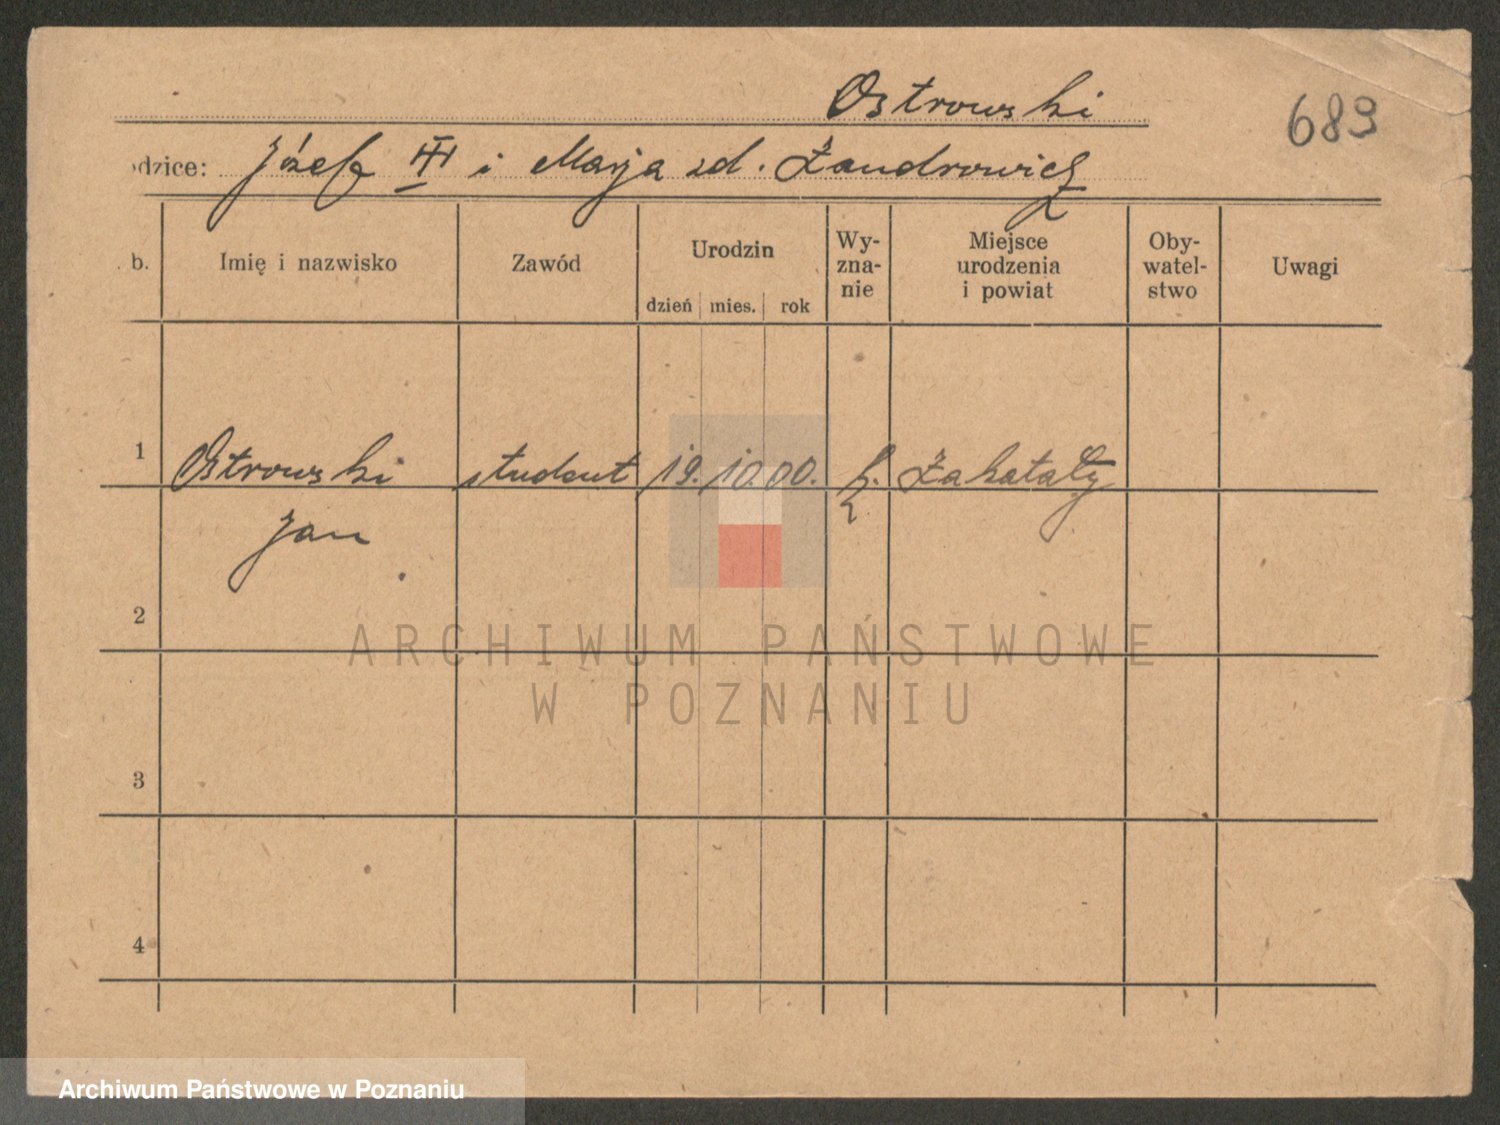 Ostrowski
689
odzice: Józef III i Marja zd. Żandrowicz
b. Imię i nazwisko Zawód Urodzin dzień mies. rok Wy-zna-nie Miejsce urodzenia i powiat Oby-watel-stwo Uwagi
1 Ostrowski student 19. 10. 00. Zakataly
Jan
2
ARCHIWUM PAŃSTWOWE
W POZNANIU
3
4
Archiwum Państwowe w Poznaniu